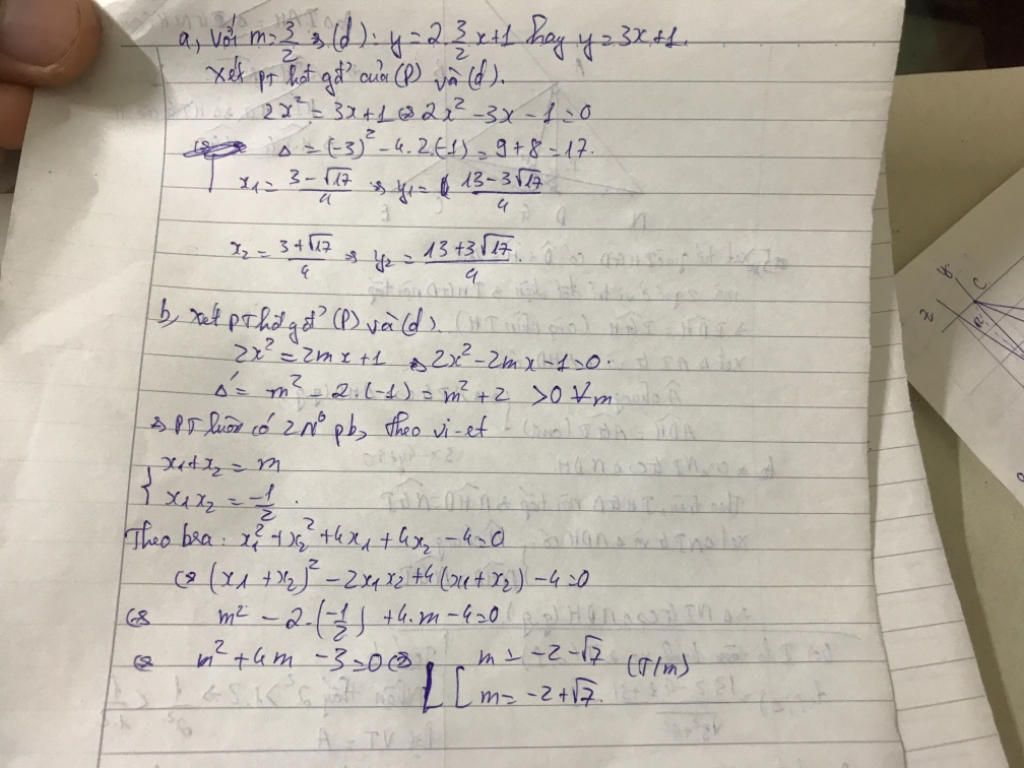 a, Với m = 3/2 => (d): y = 2.3/2 x+1 hay y = 3x+1.
Xét pt hđ gđ của (P) và (d).
2x² = 3x+1 <=> 2x² - 3x - 1 = 0
Δ = (-3)² - 4.2(-1) = 9+8 = 17.
x1 = (3-√17)/4 => y1 = (13-3√17)/4
x2 = (3+√17)/4 => y2 = (13+3√17)/4.
b, Xét pt hđ gđ (P) và (d).
2x² = 2mx+1 => 2x² - 2mx - 1 = 0.
Δ' = m² - 2.(-1) = m² + 2 > 0 ∀m
=> PT luôn có 2 N° pb, Theo vi-et
{ x1+x2 = m
x1x2 = -1/2.
Theo bra: x1² + x2² + 4x1 + 4x2 - 4 = 0
<=> (x1+x2)² - 2x1x2 + 4(x1+x2) - 4 = 0
<=> m² - 2.(-1/2) + 4.m - 4 = 0
<=> m² + 4m - 3 = 0 <=> [ m = -2-√7 (T/m)
m = -2+√7.